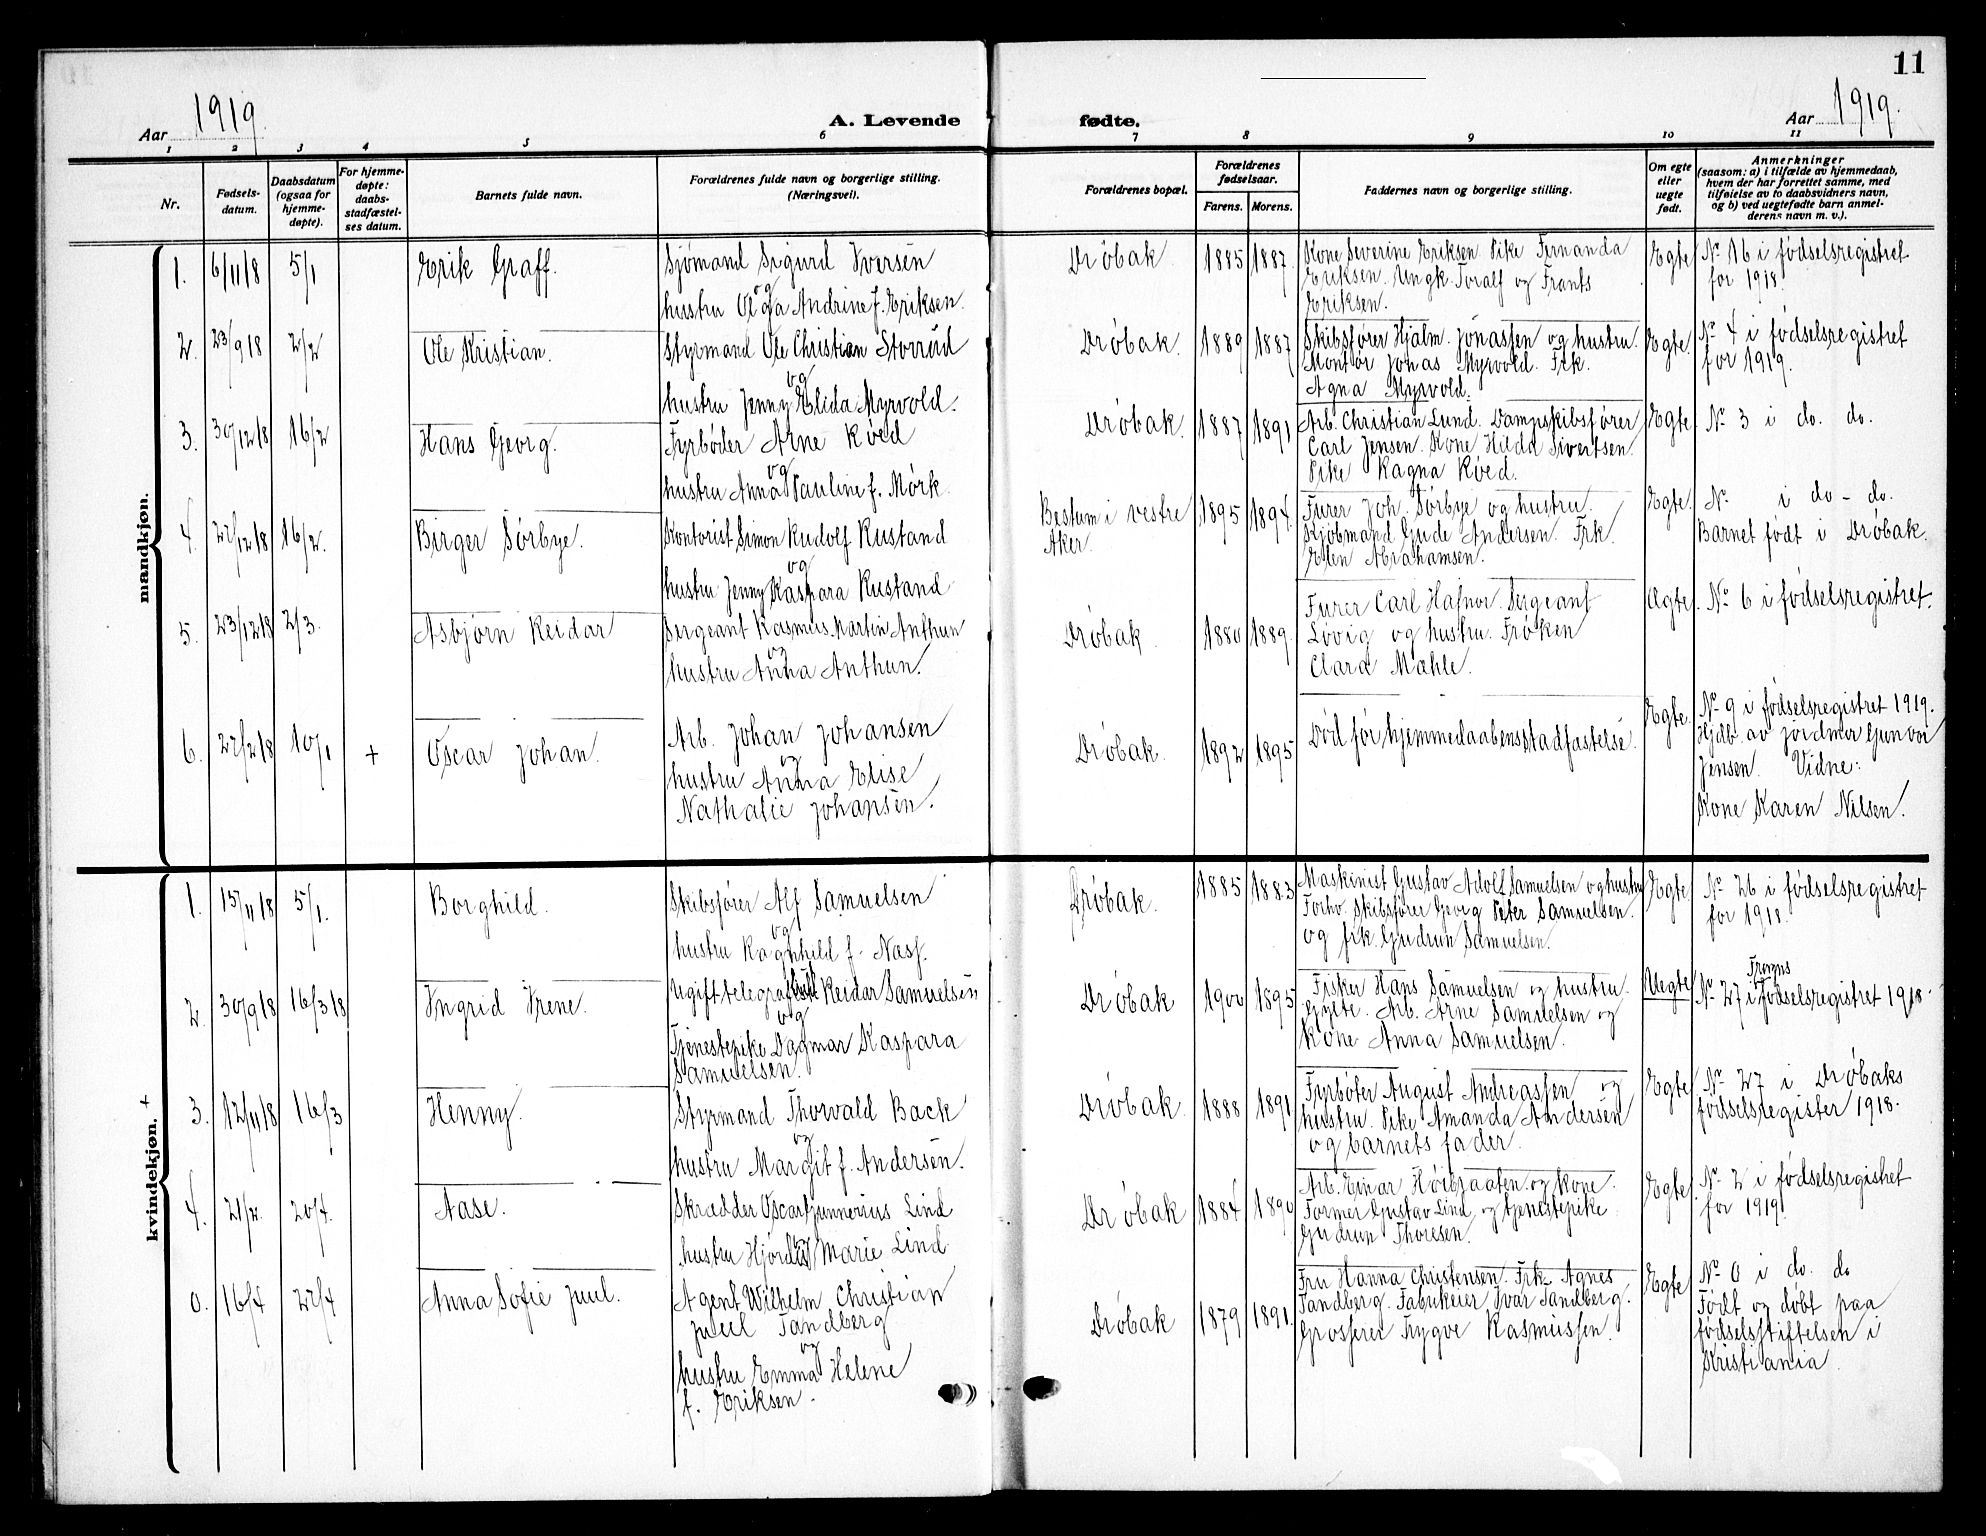 11
Aar 1919.
A. Levende fødte.
Aar 1919.
1 2 3 4 5 6 7 8 9 10 11
Nr.
Fødsels-
datum.
Daabsdatum
(ogsaa for
hjemme-
døpte).
For hjemme-
døpte:
daabs-
stadfæstel-
ses datum.
Barnets fulde navn.
Forældrenes fulde navn og borgerlige stilling.
(Næringsvei).
Forældrenes bopæl.
Forældrenes
fødselsaar.
Farens. Morens.
Faddernes navn og borgerlige stilling.
Om egte
eller
uegte
født.
Anmerkninger
(saasom: a) i tilfælde av hjemmedaab,
hvem der har forrettet samme, med
tilføielse av to daabsvidners navn,
og b) ved uegtefødte barn anmel-
derens navn m. v.).
mandkjøn.
1. 6/11 18 5/1 Erik Graff.
Sjømand Sigurd Iversen
og
hustru Olga Andrine f. Eriksen.
Drøbak. 1885 1887.
Kone Severine Eriksen. Pike Fernanda
Eriksen. Ungk. Toralf og Frants
Eriksen.
Egte
No 16 i fødselsregistret
for 1918.
2. 23/9 18 2/2 Ole Kristian.
Styrmand Ole Christian Storrud
og
hustru Jenny Elida Myrvold.
Drøbak. 1889 1887
Skibsfører Hjalm. Jonassen og hustru.
Montør Jonas Myrvold. Frk.
Agna Myrvold.
Egte.
No 4 i fødselsregistret
for 1919.
3. 30/12 18 16/2 Hans Georg.
Fyrbøder Arne Røed
og
hustru Anna Pauline f. Mørk.
Drøbak. 1887 1891
Arb. Christian Lund. Dampskibsfører
Carl Jensen. Kone Hilda Sivertsen.
Pike Ragna Røed.
Egte.
No 3 i do. do.
4. 22/12 18 16/2. Birger Sørbye.
Kontorist Simon Rudolf Rustand
og
hustru Jenny Kaspara Rustand
Bestum i vestre
Aker.
1895 1894.
Furer Joh. Sørbye og hustru.
Kjøbmand Gude Andersen. Frk.
Elen Abrahamsen.
Egte.
No i do - do.
Barnet født i Drøbak.
5. 23/12 18 2/3. Asbjørn Reidar
Sergeant Rasmus Martin Anthun
og
hustru Anna Anthun.
Drøbak. 1880 1889.
Furer Carl Hafnor. Sergeant
Lovig og hustru. Frøken
Clara Mæhle.
Egte.
No 6 i fødselsregistret.
6. 22/2 18 10/1 + Oscar Johan.
Arb. Johan Johansen
og
hustru Anna Elise
Nathalie Johansen.
Drøbak. 1892 1895
Død før hjemmedaabens stadfæstelse.
Egte.
No 9 i fødselsregistret 1919.
Hjdb. av jordmor Gunvor
Jensen. Vidne:
Kone Karen Nilsen.
kvindekjøn. +
1. 15/11 18 5/1. Borghild.
Skibsfører Alf Samuelsen
og
hustru Ragnhild f. Næss.
Drøbak. 1885 1883
Maskinist Gustav Adolf Samuelsen og hustru
Forhv. Skibsfører Georg Peter Samuelsen.
og frk. Gudrun Samuelsen.
Egte
No 26 i fødselsregistret
for 1918.
2. 30/9 18 16/3 18 Ingrid Irene.
Ugift telegrafist Reidar Samuelsen
og
Tjenestepike Dagmar Kaspara
Samuelsen.
Drøbak 1900 1895
Fisker Hans Samuelsen og hustru.
Gylte. Arb. Arne Samuelsen og
Kone Anna Samuelsen.
Uegte
Frogns
No 27 i fødselsregistret 1918.
3. 12/11 18 16/3 Henny.
Styrmand Thorvald Back
og
hustru Margit f. Andersen.
Drøbak. 1888 1891
Fyrbøter August Andreassen og
hustru. Pike Amanda Andersen
og barnets fader.
Egte
No 27 i Drøbaks
fødselsregister 1918.
4. 21/2. 20/4. Aase.
Skrædder Oscar Gunnerius Lind
og
hustru Hjørdis Marie Lind.
Drøbak 1884 1890
Arb. Einar Høibraaten og kone.
Former Gustav Lind og tjenestepike
Gudrun Thoresen.
Egte.
No 2 i fødselsregistret
for 1919
0. 16/4 22/4 Anna Sofie Juul.
Agent Wilhelm Christian
Juul Tandberg
og
hustru Emma Helene
f. Eriksen.
Drøbak 1879 1891.
Fru Hanna Christensen. Frk. Agnes
Tandberg. Fabrikeier Ivar Tandberg.
Grosserer Trygve Rasmussen.
Egte
No 0 i do. do
Født og døbt paa
fødselsstiftelsen i
Kristiania.